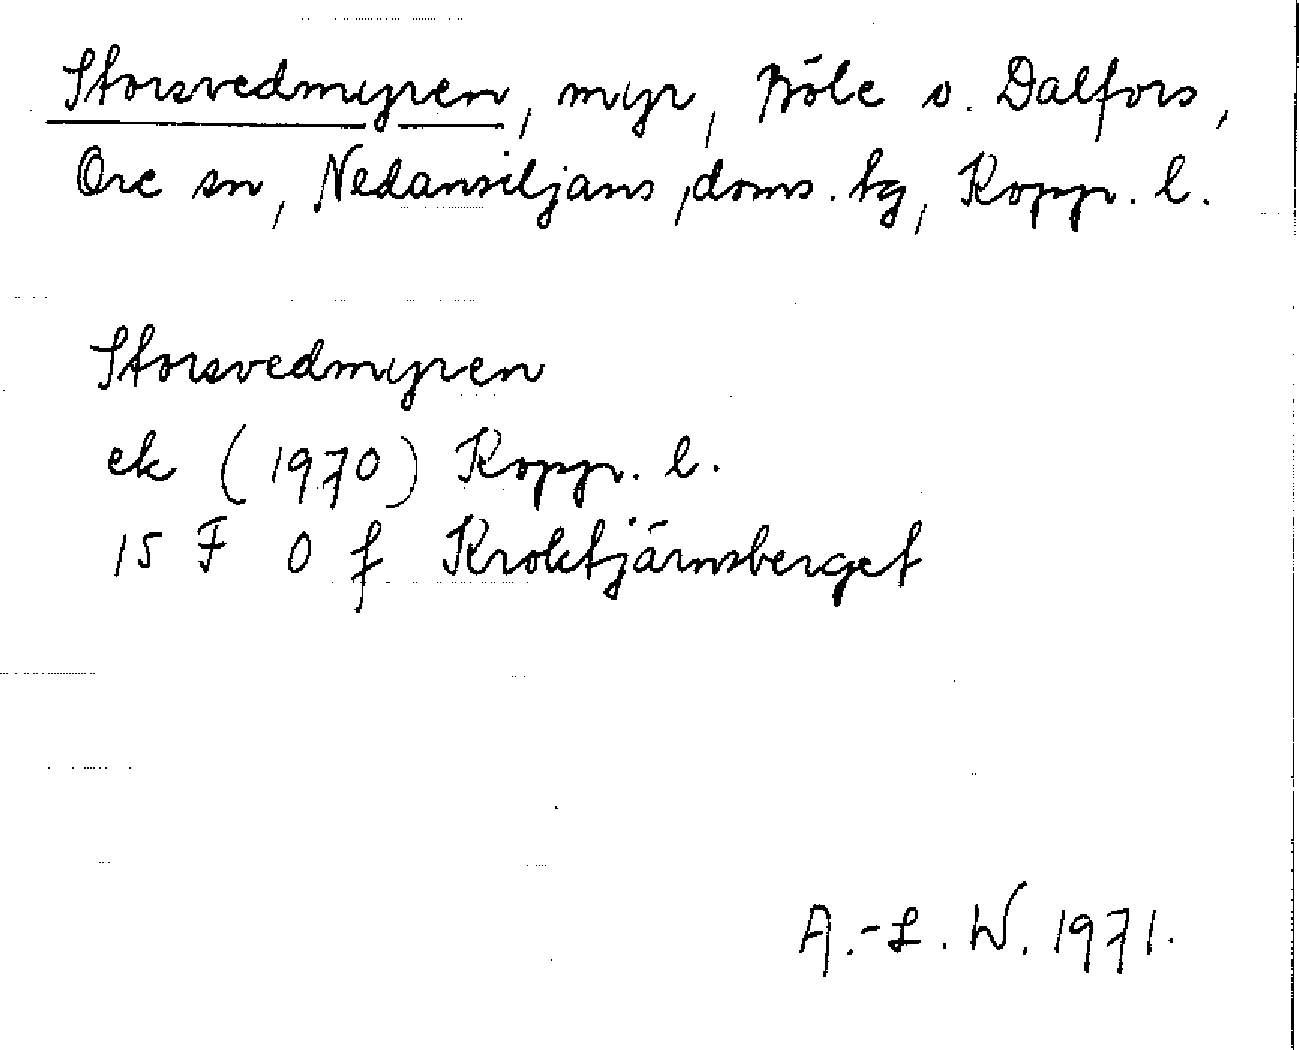 Storsvedmyren, myr, Böle o. Dalfors,
Ore sn, Nedansiljans doms. tg, Kopp. l.
Storsvedmyren
ek (1970) Kopp. l.
15 F 0 f Kroktjärnsberget
A.-L. W. 1971.